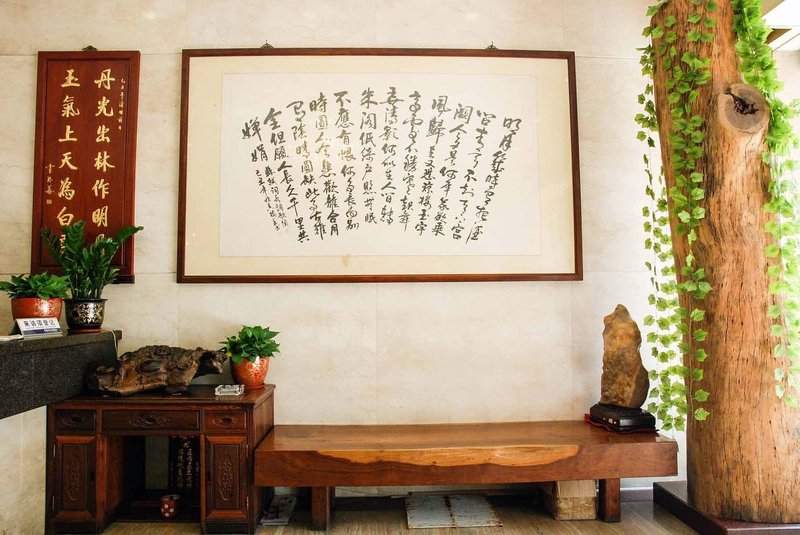 丹光出林作明
玉氣上天為白
明月幾時有把酒
問青天不知天上宮
闕今夕是何年我欲乘
風歸去又恐瓊樓玉宇
高處不勝寒起舞
弄清影何似在人間轉
朱閣低綺户照無眠
不應有恨何事長向別
時圓人有悲歡離合月
有陰晴圓缺此事古難
全但願人長久千里共
嬋娟